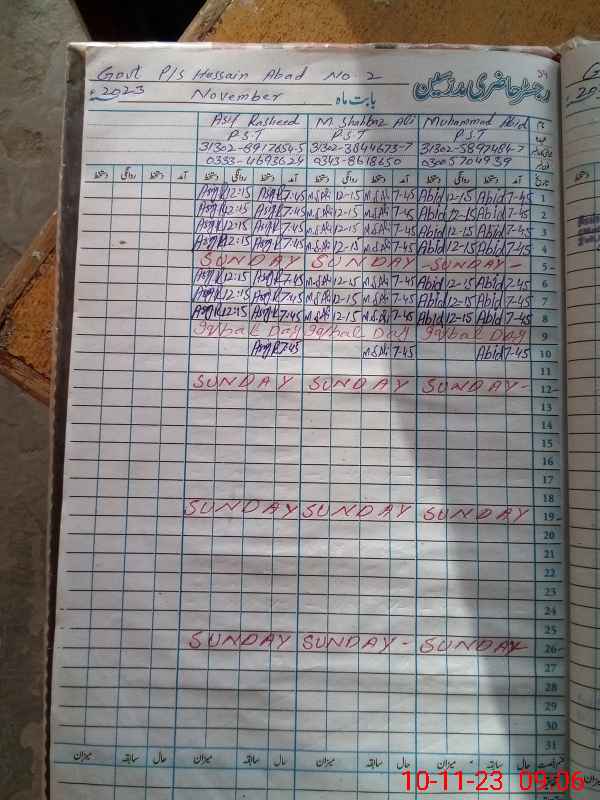 Govt P/S Hussain Abad No. 2
رجسٹر حاضری مدرسین
2023 November بابت ماہ
Asif Rasheed M. Shahbaz Ali Muhammad Abid
P.S.T P.S.T P.S.T
31302-8917654-5 31302-3844673-7 31302-5897484-7
0333-4693624 0343-8618650 03005704939
تاریخ آمد دستخط روانگی دستخط آمد دستخط روانگی دستخط آمد دستخط روانگی دستخط آمد دستخط روانگی دستخط
Asif R 12:15 Asif R 7:45 M.S.Ali 12-15 M.S.Ali 7-45 Abid 12-15 Abid 7-45 1
Asif R 12:15 Asif R 7:45 M.S.Ali 12-15 M.S.Ali 7-45 Abid 12-15 Abid 7-45 2
Asif R 12:15 Asif R 7:45 M.S.Ali 12-15 M.S.Ali 7-45 Abid 12-15 Abid 7-45 3
Asif R 12:15 Asif R 7:45 M.S.Ali 12-15 M.S.Ali 7-45 Abid 12-15 Abid 7-45 4
SUNDAY SUNDAY -SUNDAY- 5
Asif R 12:15 Asif R 7:45 M.S.Ali 12-15 M.S.Ali 7-45 Abid 12-15 Abid 7-45 6
Asif R 12:15 Asif R 7:45 M.S.Ali 12-15 M.S.Ali 7-45 Abid 12-15 Abid 7-45 7
Asif R 12:15 Asif R 7:45 M.S.Ali 12-15 M.S.Ali 7-45 Abid 12-15 Abid 7-45 8
Iqbal Day Iqbal Day Iqbal Day 9
Asif R 7:45 M.S.Ali 7-45 Abid 7-45 10
11
SUNDAY SUNDAY SUNDAY- 12
13
14
15
16
17
18
SUNDAY SUNDAY SUNDAY 19
20
21
22
23
24
25
SUNDAY SUNDAY- SUNDAY 26
27
28
29
30
31
حال سابقہ میزان حال سابقہ میزان حال سابقہ میزان حال سابقہ میزان
10-11-23 09:06